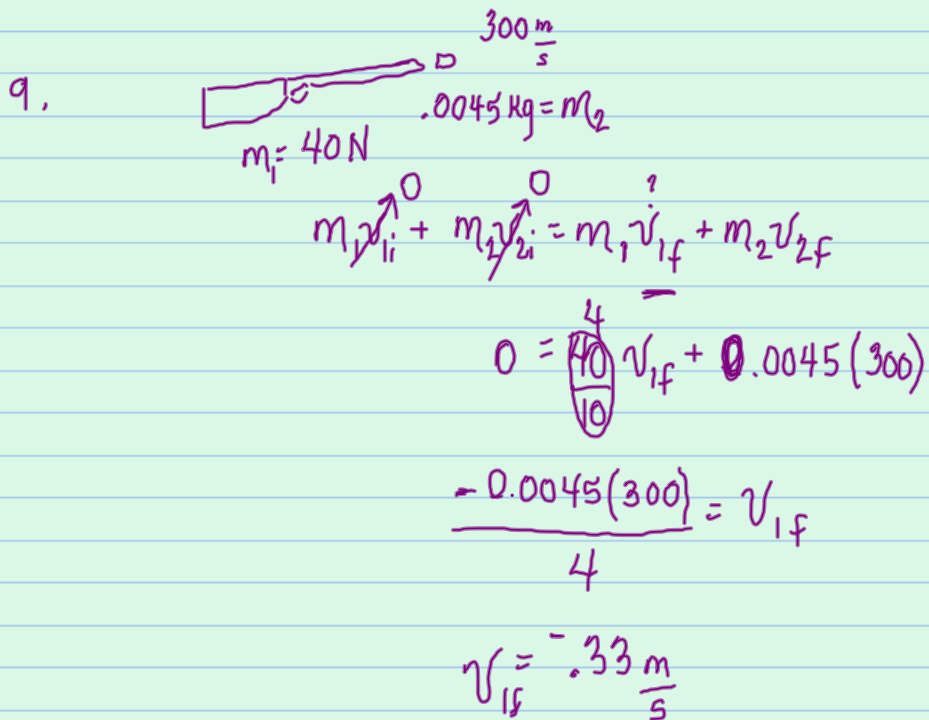 300 m/s
9.
.0045 kg = m₂
m₁ = 40N
0 0 ?
m₁v₁ᵢ + m₂v₂ᵢ = m₁v₁f + m₂v₂f
4
0 = 40/10 v₁f + 0.0045(300)
-0.0045(300)/4 = v₁f
v₁f = -.33 m/s